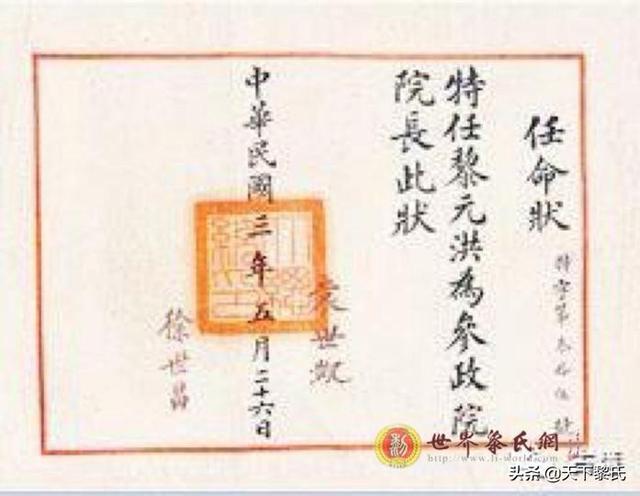 任命狀
特字第叁拾伍號
特任黎元洪為參政院
院長此狀
袁世凱
中華民國三年五月二十六日
徐世昌
世界黎氏網
www.li-world.com
头条@天下黎氏